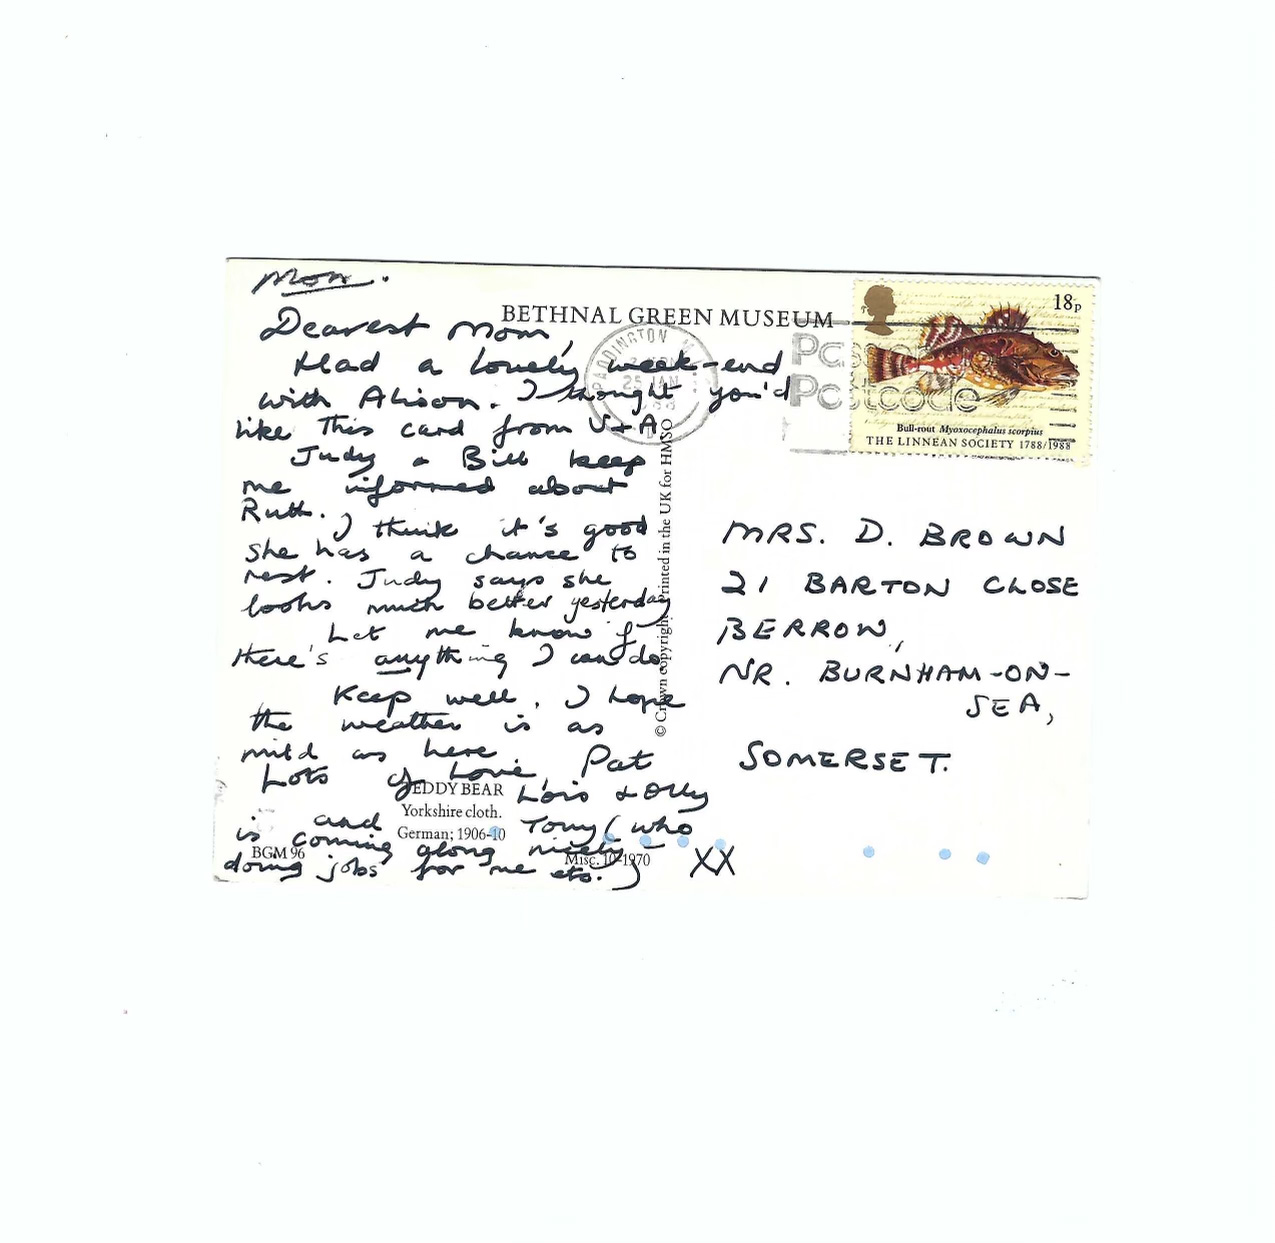 Mon.
BETHNAL GREEN MUSEUM
Dearest Mom,
Had a lovely week-end
with Alison. I thought you'd
like this card from V+A
Judy & Bill keep
me informed about
Ruth.
I think it's good
she has a chance to
rest. Judy says she
looks much better yesterday
Let me know if
there's anything I can do
Keep well. I hope
the weather is as
mild as here.
Lots of Love, Pat
Lois & Olly
and Tony (who
is coming along nicely -
doing jobs for me etc.)
XX
TEDDY BEAR
Yorkshire cloth.
German; 1906-10
BGM 96
Misc. 10-1970
© Crown copyright Printed in the UK for HMSO
PADDINGTON
25 JAN
Postcode
18p
Bull-rout Myoxocephalus scorpius
THE LINNEAN SOCIETY 1788/1988
MRS. D. BROWN
21 BARTON CLOSE
BERROW,
NR. BURNHAM-ON-
SEA,
SOMERSET.